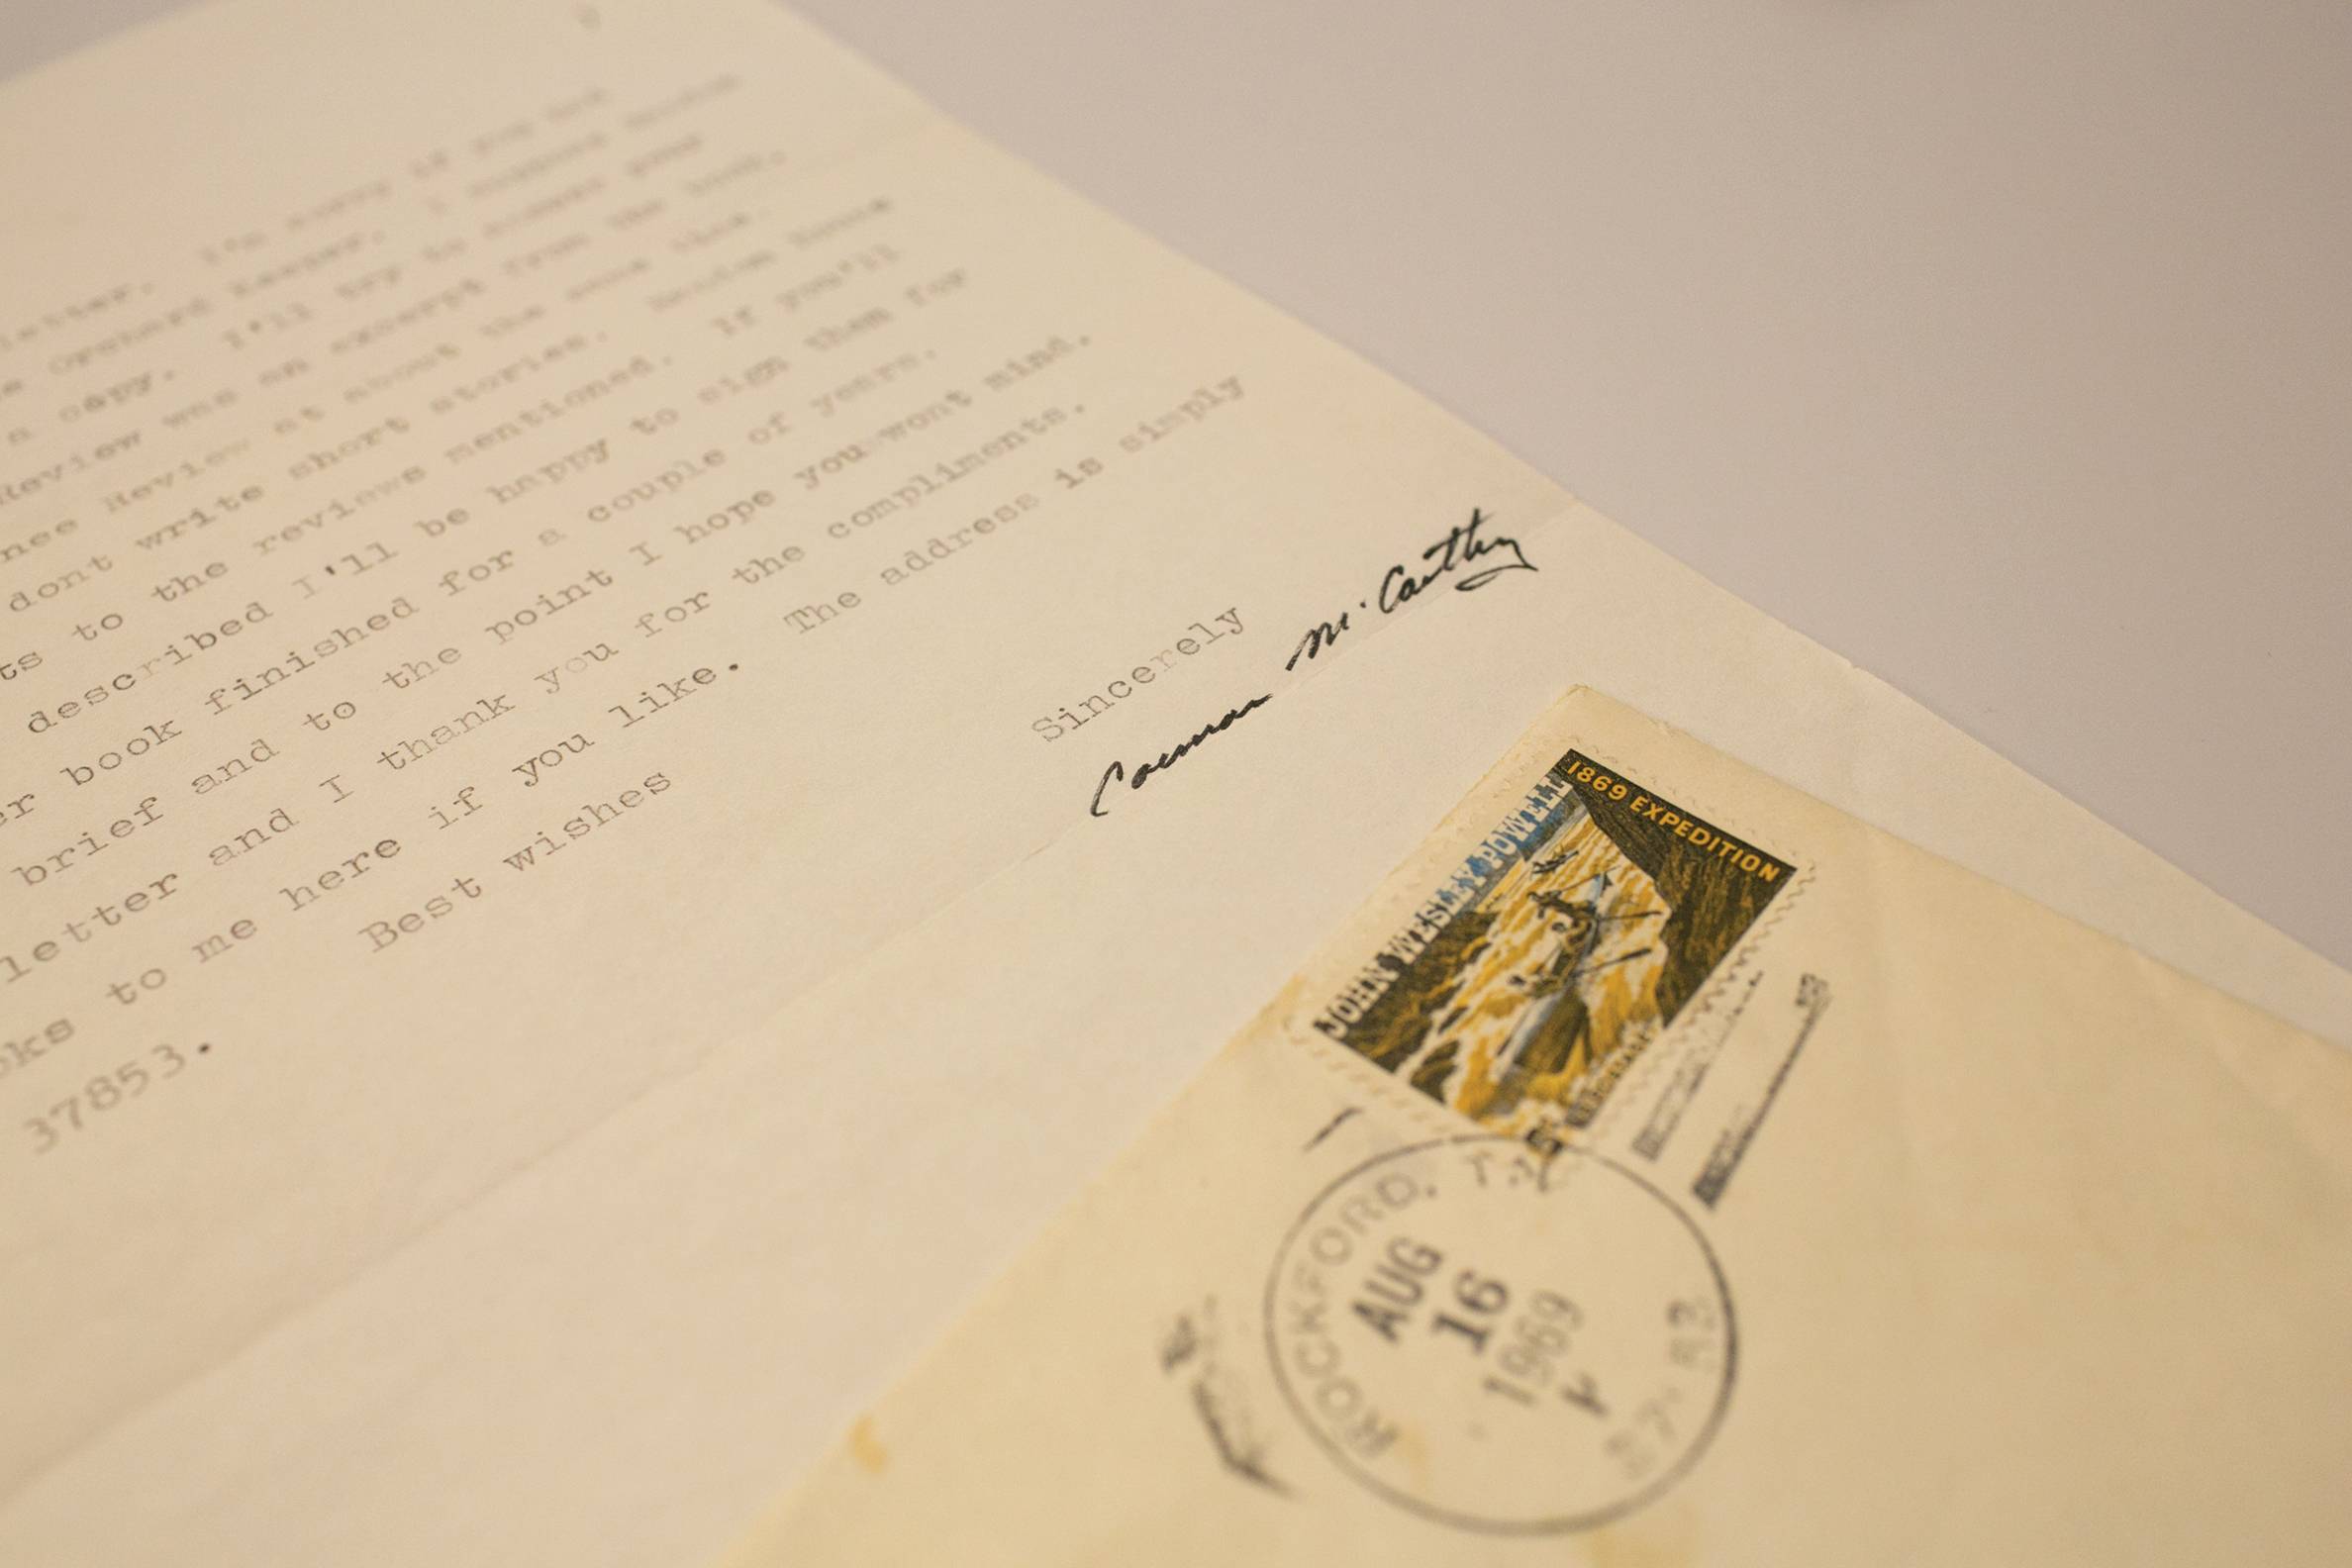 letter. I'm sorry if you had
Orchard Keeper. I
a copy. I'll try to your
Review was an excerpt from the book.
nee Review at about the same time.
dont write short stories. Random House
ts to the reviews mentioned. If you'll
described I'll be happy to sign them for
er book finished for a couple of years.
brief and to the point I hope you wont mind.
letter and I thank you for the compliments.
oks to me here if you like. The address is simply
37853.
Best wishes
Sincerely
Cormac McCarthy
1869 EXPEDITION
JOHN WESLEY POWELL
ROCKFORD,
AUG
16
1969